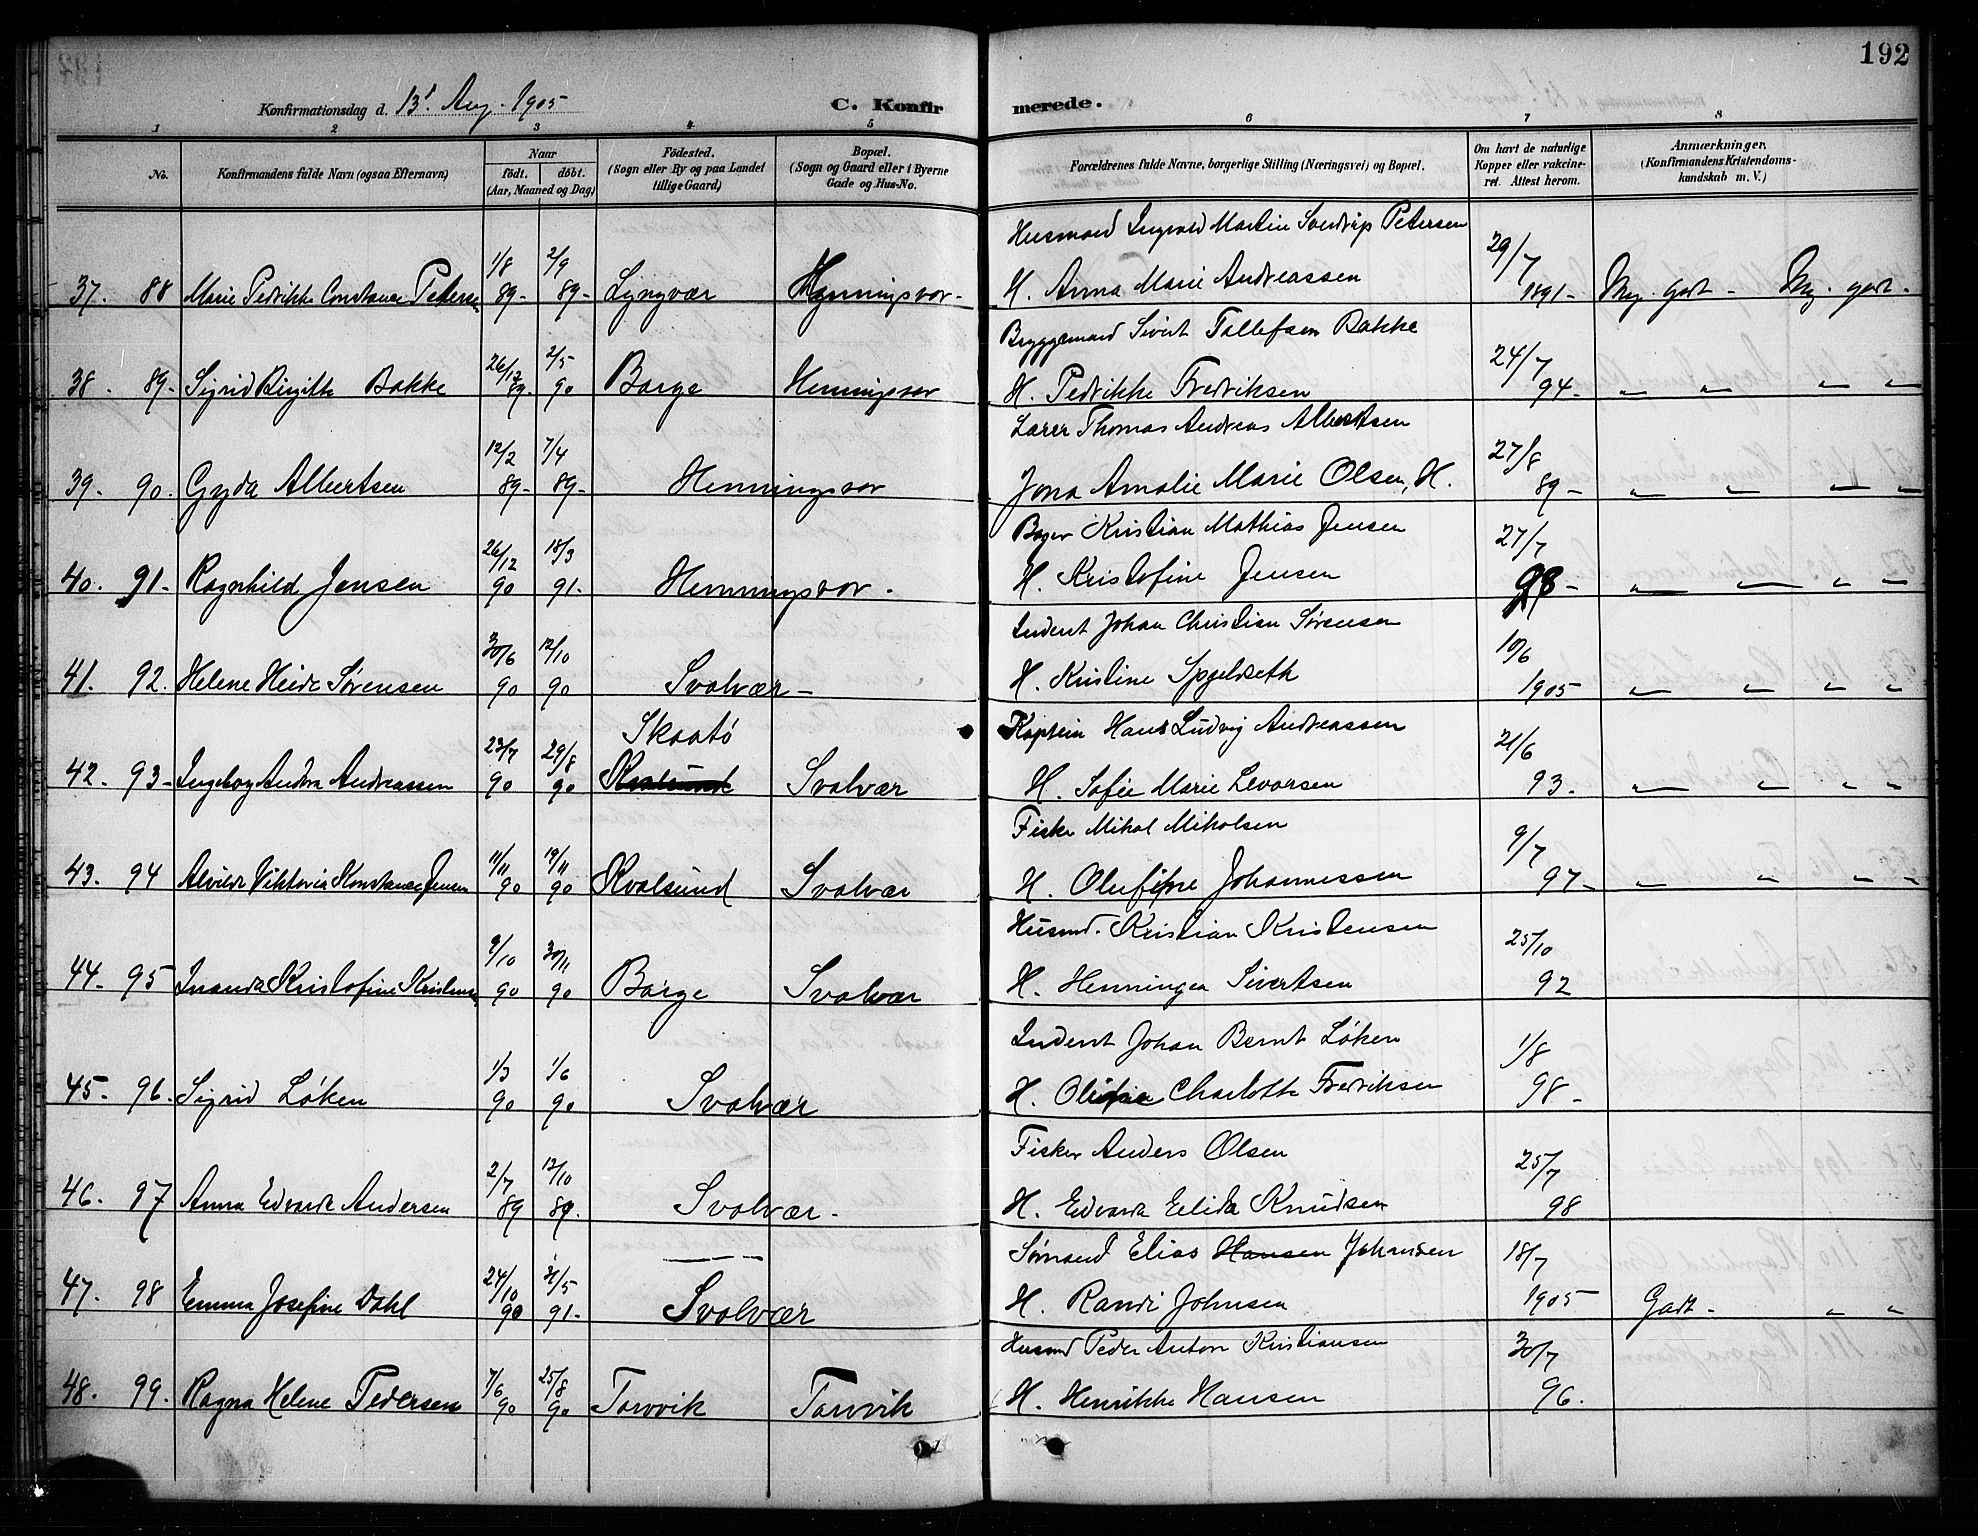 192
Konfirmationsdag d. 13' Aug. 1905
C. Konfirmerede.
1 2 3 4 5 6 7 8
No. Konfirmandens fulde Navn (ogsaa Efternavn) Naar födt. döbt. (Aar, Maaned og Dag) Födested. (Sogn eller By og paa Landet tillige Gaard) Bopæl. (Sogn og Gaard eller i Byerne Gade og Hus-No. Forældrenes fulde Navne, borgerlige Stilling (Næringsvei) og Bopæl. Om havt de naturlige Kopper eller vakcineret. Attest herom. Anmærkninger. (Konfirmandens Kristendomskundskab m. V.)
Husmand Ingvald Martin Sverdrup Petersen
37. 88 Marie Pedrikke Constance Petersen 1/8 89- 2/9 89- Lyngvær Henningsvær- H. Anna Marie Andreassen 29/7 1891- Mg. Godt - Mg. godt.
Bryggemand Sivert Tollefsen Bakke
38. 89- Sigrid Birgitte Bakke 26/12 89. 2/5 90 Borge Henningsvær H. Pedrikke Fredriksen 24/7 94. " " " "
Lærer Thomas Andreas Albertsen
39. 90. Gyda Albertsen 12/2 89- 7/4 89- Henningsvær Jona Amalie Marie Olsen, H. 27/8 89- " " " "
Bager Kristian Mathias Jensen
40. 91- Ragnhild Jensen 26/12 90 18/3 91- Henningsvær. H. Kristofine Jensen 27/7 98- " " " "
Inderst Johan Christian Sørensen
41. 92. Helene Heide Sørensen 30/6 90 12/10 90 Svolvær- H. Kristine Spjeldseth 10/6 1905 " " " "
Skaatö
Kaptein Hans Ludvig Andreassen
42. 93- Ingeborg Andrea Andreassen 23/7 90 29/8 90 Kvalsund Svolvær H. Sofie Marie Levorsen 21/6 93. " " " "
Fisker Mikal Mikalsen
43. 94 Alvilde Viktoria Konstance Jensen 11/11 90 19/11 90 Kvalsund Svolvær H. Olufine Johannessen 9/7 97- " " " "
Husmd. Kristian Kristensen
44- 95 Kristofine Kristensen 9/10 90 30/11 90 Borge Svolvær H. Henningea Sivertsen 25/10 92
Inderst Johan Bernt Løken
45. 96. Sigrid Løken 1/3 90 1/6 90 Svolvær H. Charlotte Fredriksen 1/8 98-
Fisker Anders Olsen
46. 97 Anna Edvarde Andersen 2/7 89 12/10 89. Svolvær. H. Edvarda Elida Knudsen 25/7 98
Sømand Elias Hansen Johansen
47. 98 Emma Josefine Dahl 24/10 90 31/5 91- Svolvær H. Randi Johnsen 18/7 1905 Godt- " "
Husmd Peder Anton Kristiansen
48. 99. Ragna Helene Pedersen 7/6 90 25/8 90 Torvvik Torvvik H. Henrikke Hansen 30/7 96.